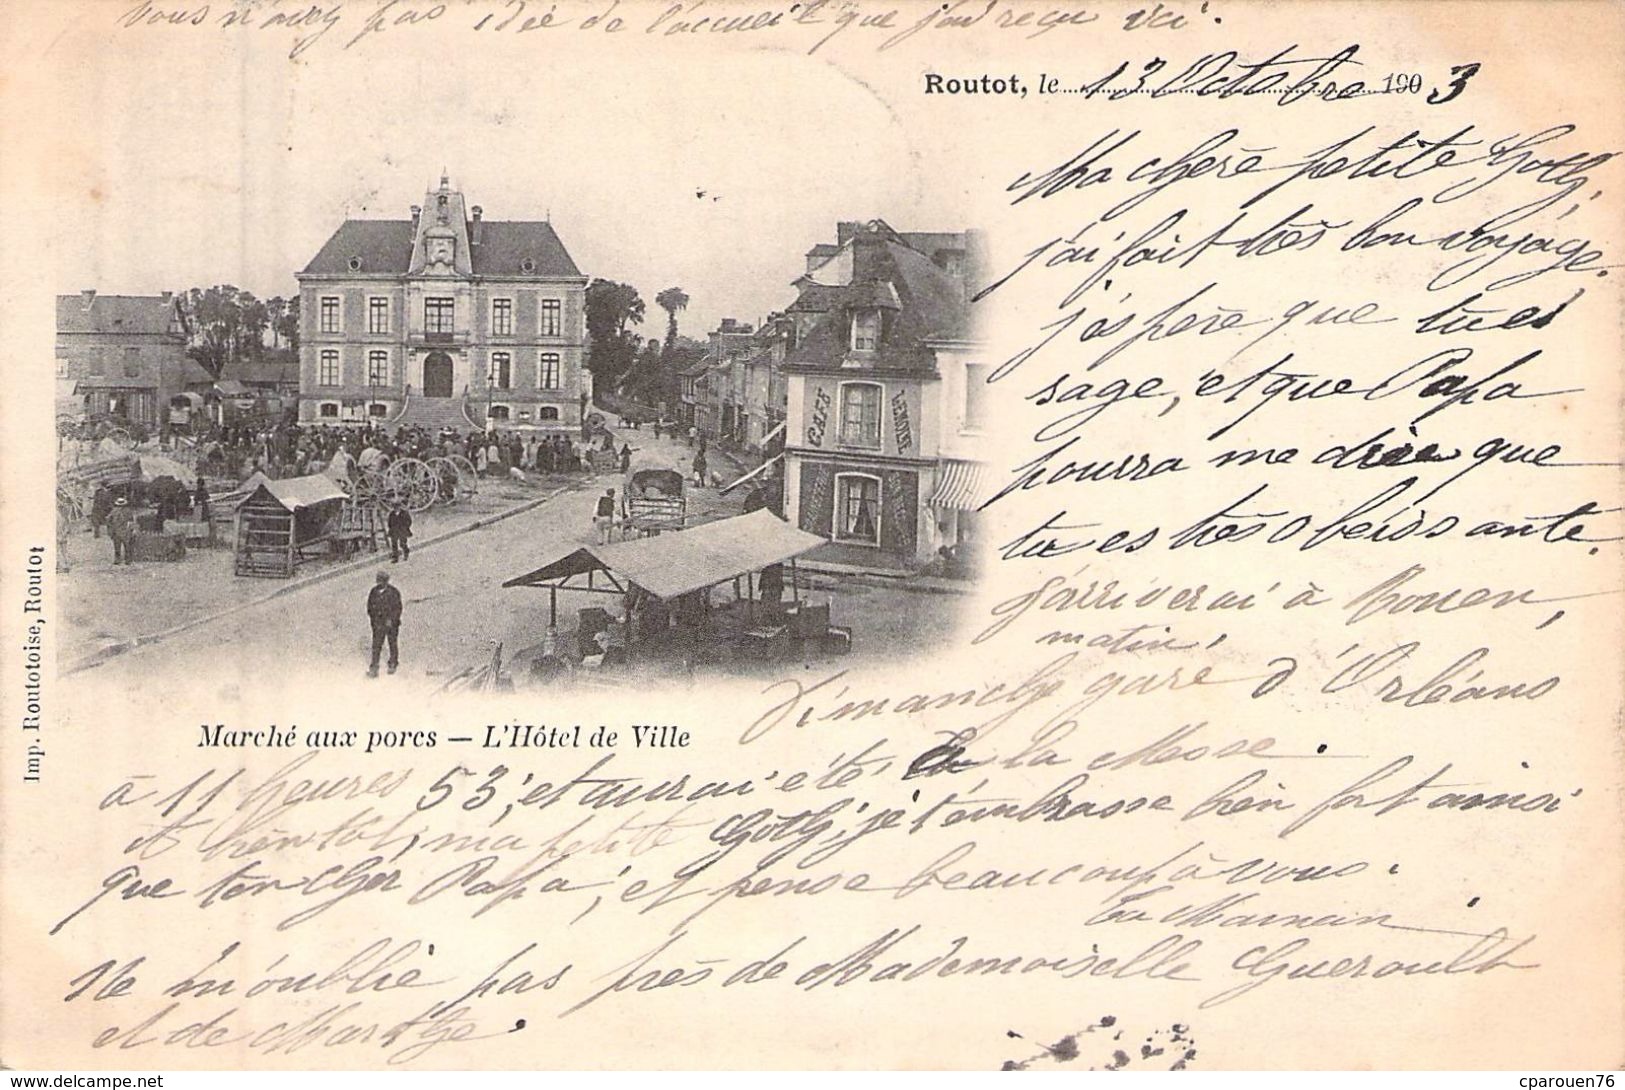 vous n'avez pas idée de l'accueil que j'ai reçu ici.
Routot, le 13 Octobre 1903
Ma chère petite
j'ai fait très bon voyage.
j'éspère que tu es
sage, et que Papa
pourra me dire que
tu es très obeissante.
J'arriverai à Rouen,
matin,
Dimanche gare d'Orléans
Marché aux porcs — L'Hôtel de Ville
à 11 heures 53, et aurai été à la Messe.
et bientôt, ma petite je t'embrasse bien fort ainsi
que ton cher Papa, et pense beaucoup à vous.
Ta Maman
Ne m'oublie pas près de Mademoiselle Gueroult
et de Marthe.
Imp. Routotoise, Routot
CAFÉ
LEMOINE
www.delcampe.net
cparouen76